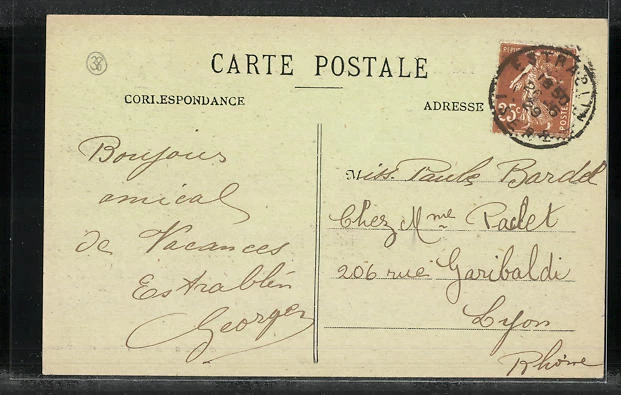 38
CARTE POSTALE
CORRESPONDANCE
ADRESSE
Bonjour
amical
de Vacances
Estrablin
Georges
Miss. Paule Bardel
Chez Mme Padet
206 rue Garibaldi
Lyon
Rhône
ESTRABLIN
ISERE
25c
POSTES